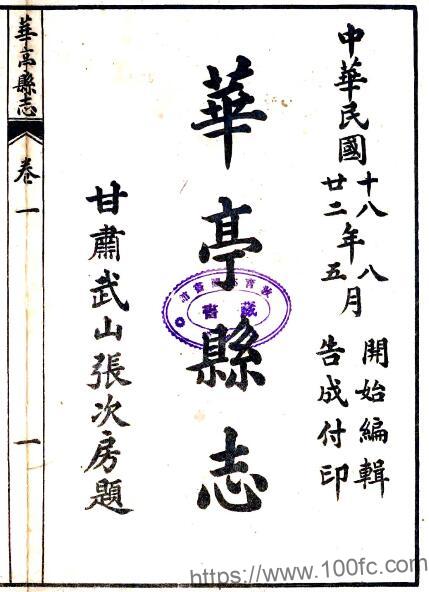 中華民國十八年八月開始編輯
廿二年五月告成付印
華亭縣志
甘肅武山張次房題
華亭縣志
卷一
一
藏書
https://www.100fc.com